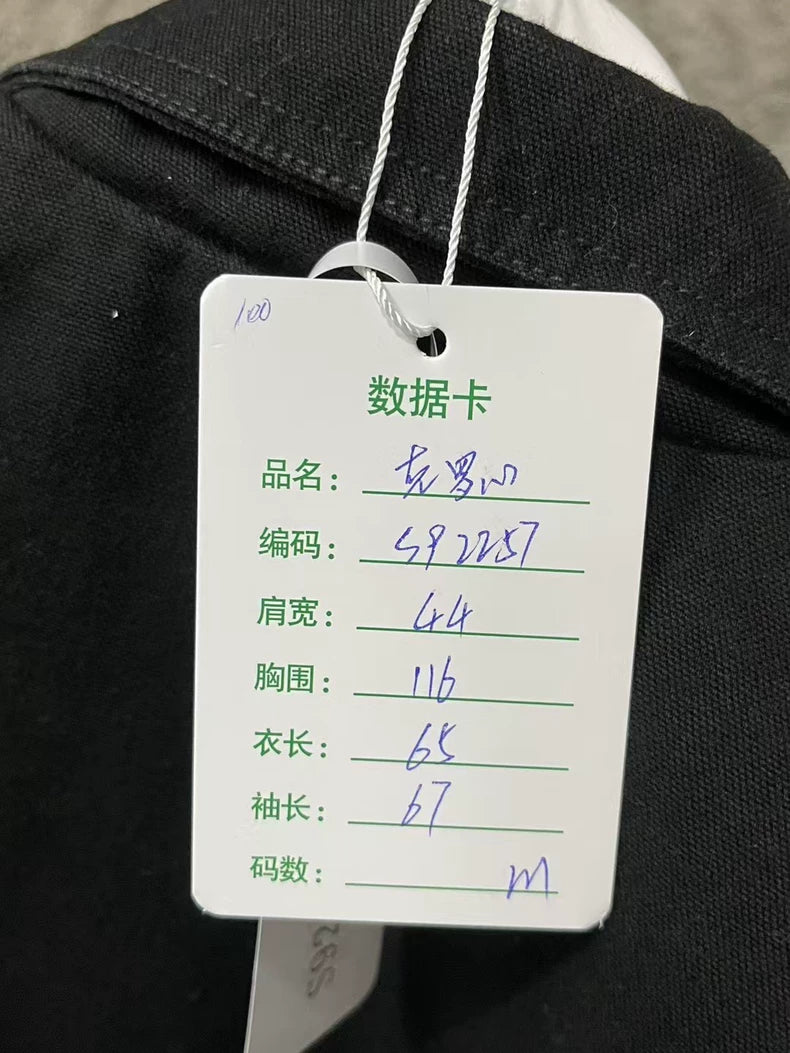 100
数据卡
品名：克罗心
编码：SP2257
肩宽：44
胸围：116
衣长：65
袖长：67
码数：M